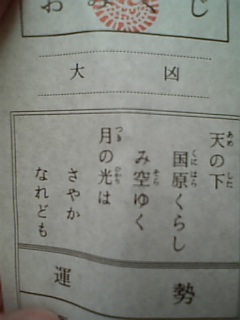 おみくじ
大凶
天の下
国原くらし
み空ゆく
月の光は
さやか
なれども
運勢